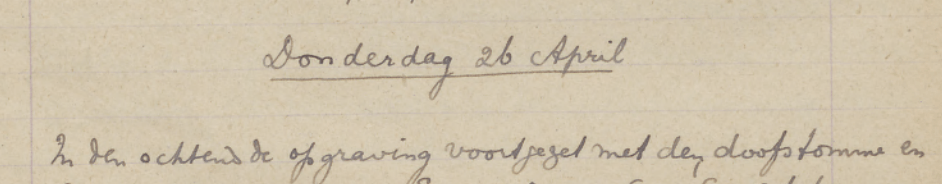 Donderdag 26 April
In den ochtend de opgraving voortgezet met den doofstomme en